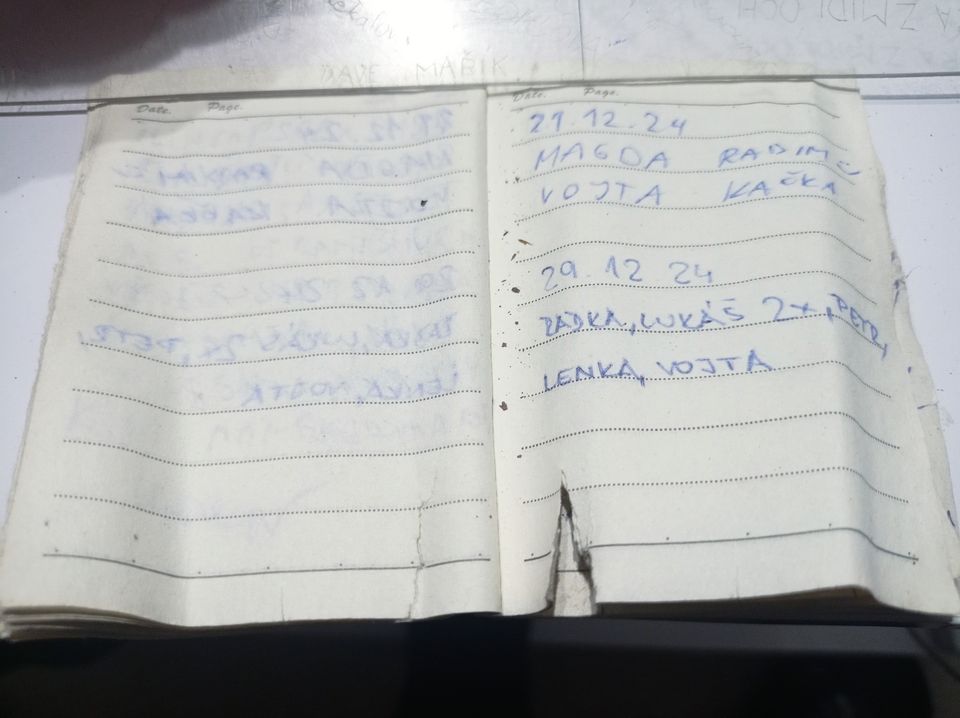 DAVE MAŘÍK
Date. Page.
Date. Page.
21.12.24
MAGDA RADIM
VOJTA KAČKA
29.12 24
RADKA, LUKÁŠ 2x, PETR,
LENKA, VOJTA